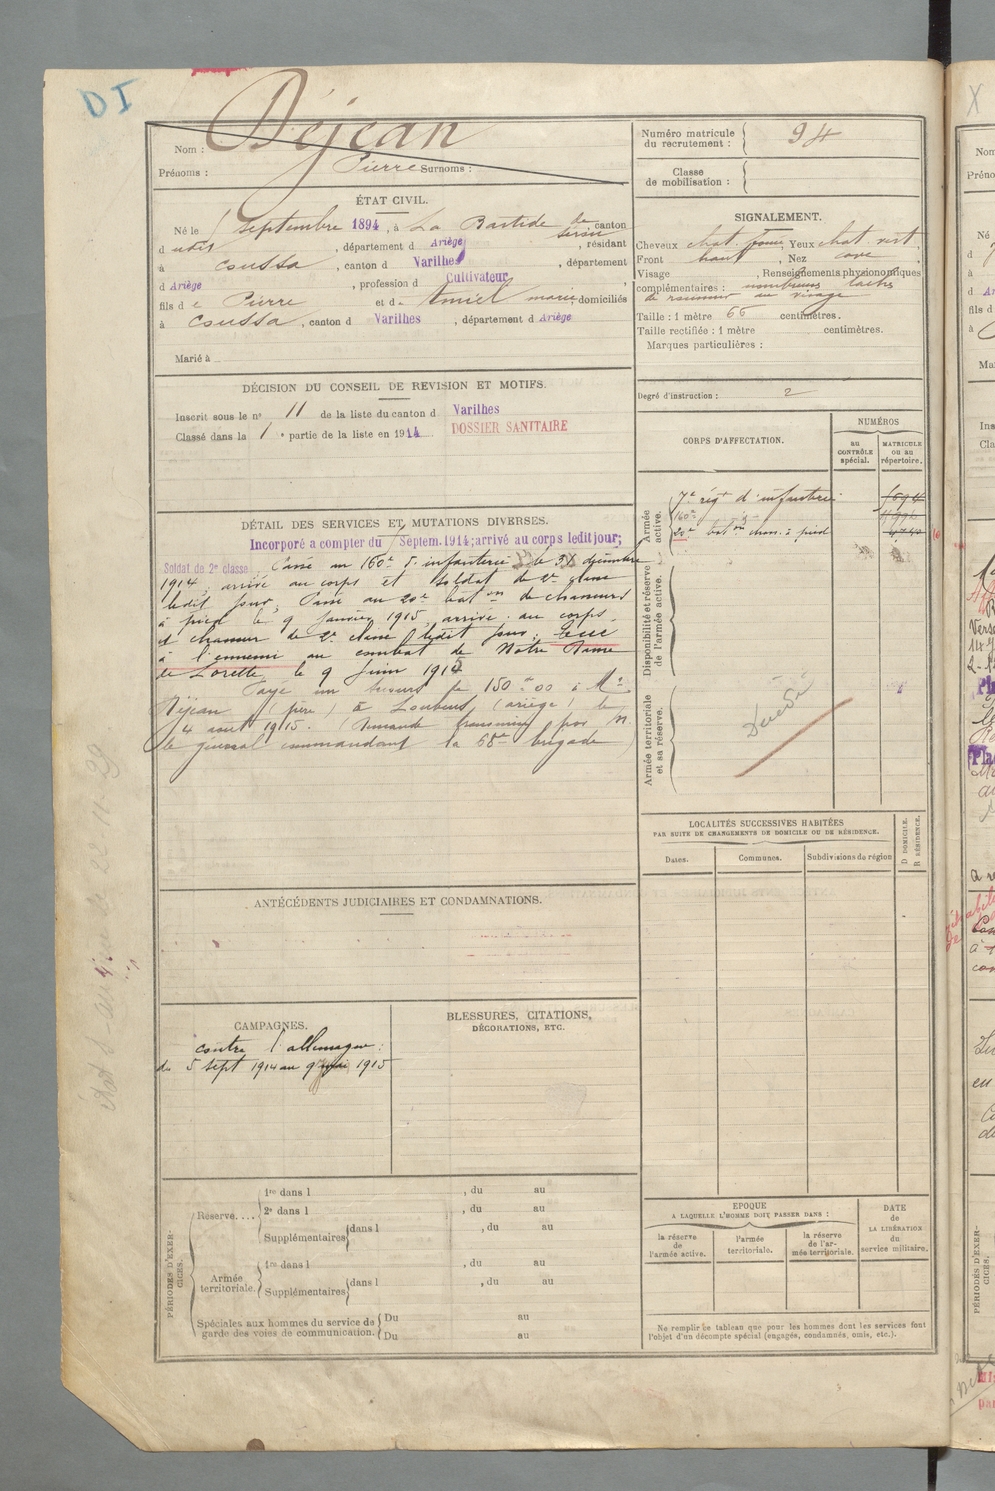 DI
Nom : Déjean
Prénoms : Pierre Surnoms :
ÉTAT CIVIL.
Né le septembre 1894, à La Bastide de Sérou, canton
d udit, département d Ariège, résidant
à Coussa, canton d Varilhes, département
d Ariège, profession d Cultivateur,
fils d e Pierre et d e Amiel marie domiciliés
à Coussa, canton d Varilhes, département d Ariège
Marié à
DÉCISION DU CONSEIL DE REVISION ET MOTIFS.
Inscrit sous le n° 11 de la liste du canton d Varilhes
Classé dans la 1 e partie de la liste en 1914 DOSSIER SANITAIRE
DÉTAIL DES SERVICES ET MUTATIONS DIVERSES.
Incorporé a compter du Septem.1914; arrivé au corps ledit jour;
Soldat de 2e classe Passé au 160e r. infanterie le décembre
1914, arrivé au corps et soldat de 2e classe
ledit jour, Passé au 20e bat on de chasseurs
à pied le 9 Janvier 1915, arrivé au corps
et chasseur de 2e classe ledit jour. Tué
à l'ennemi au combat de Notre Dame
de Lorette, le 9 Juin 1915
Payé un secours de 150 00 à Mr
Déjean (père) à Loubens (ariège) le
4 août 1915. (Demande transmise par M.
le général commandant la brigade)
ANTÉCÉDENTS JUDICIAIRES ET CONDAMNATIONS.
CAMPAGNES.
contre l'allemagne :
du 5 sept 1914 au 9 1915
BLESSURES, CITATIONS,
DÉCORATIONS, ETC.
PÉRIODES D'EXERCICES.
Réserve.... 1re dans l , du au
2e dans l , du au
Supplémentaires dans l , du au
Armée territoriale. 1re dans l , du au
Supplémentaires dans l , du au
Spéciales aux hommes du service de Du au
garde des voies de communication. Du au
Numéro matricule
du recrutement : 94
Classe
de mobilisation :
SIGNALEMENT.
Cheveux chat. foncé, Yeux chat. vert,
Front haut, Nez cave,
Visage , Renseignements physionomiques
complémentaires : nombreuses taches
de rousseur au visage
Taille : 1 mètre 66 centimètres.
Taille rectifiée : 1 mètre centimètres.
Marques particulières :
Degré d'instruction : 2
CORPS D'AFFECTATION.
NUMÉROS
au CONTRÔLE spécial.
MATRICULE ou au répertoire.
Armée active.
7e régt d'infanterie
160e
20e bat on chas. à pied
Disponibilité et réserve de l'armée active.
Armée territoriale et sa réserve.
Décédé
LOCALITÉS SUCCESSIVES HABITÉES
PAR SUITE DE CHANGEMENTS DE DOMICILE OU DE RÉSIDENCE.
Dates. Communes. Subdivisions de région
D DOMICILE.
R RÉSIDENCE.
EPOQUE
A LAQUELLE L'HOMME DOIT PASSER DANS :
la réserve de l'armée active.
l'armée territoriale.
la réserve de l'armée territoriale.
DATE
de
LA LIBÉRATION
du
service militaire.
Ne remplir ce tableau que pour les hommes dont les services font
l'objet d'un décompte spécial (engagés, condamnés, omis, etc.).